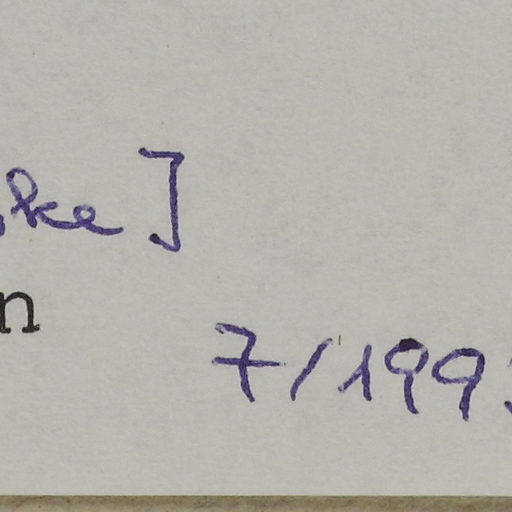 ke]
n
7/199